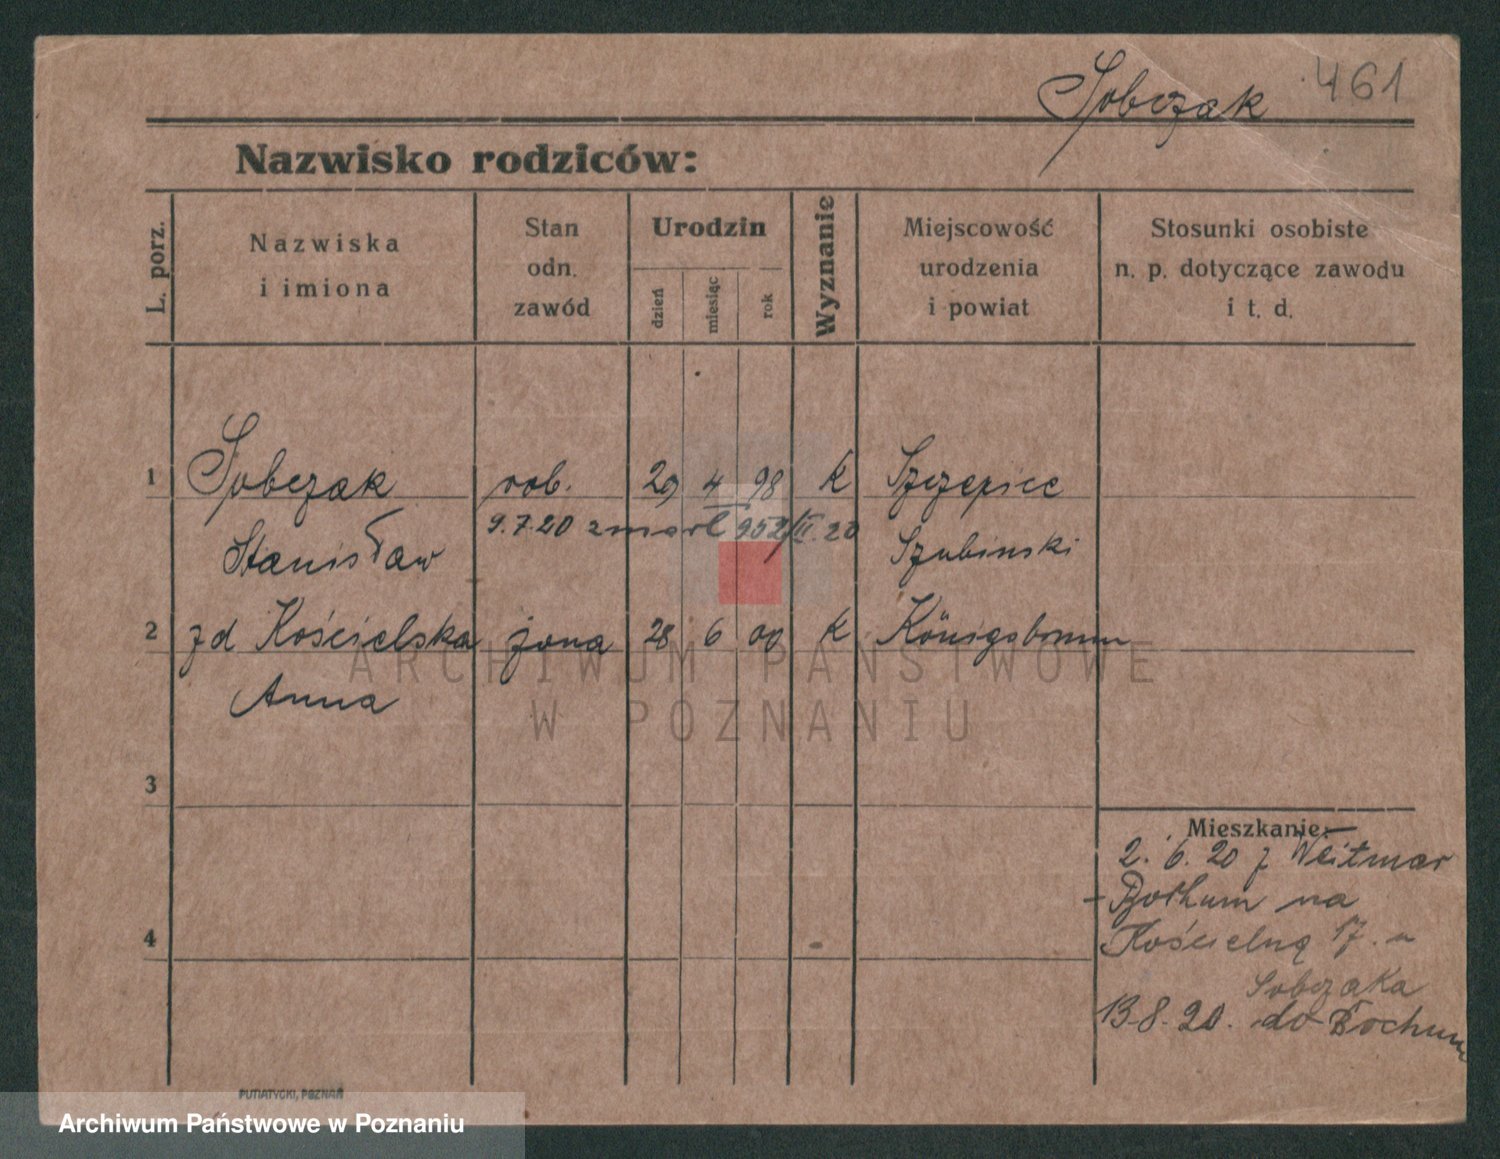 Sobczak 461
Nazwisko rodziców:
L. porz.
Nazwiska
i imiona
Stan
odn.
zawód
Urodzin
dzień
miesiąc
rok
Wyznanie
Miejscowość
urodzenia
i powiat
Stosunki osobiste
n. p. dotyczące zawodu
i t. d.
1 Sobczak rob. 29 4 98 k Szczepice
9.7.20 zmarł 952/II.20
Stanisław Szubinski
2 zd Kościelska żona 28 6 00 k Königsborn
Anna
ARCHIWUM PAŃSTWOWE
W POZNANIU
3
Mieszkanie:
2. 6. 20 z Weitmar
- Bochum na
4 Kościelną 17. u
Sobczaka
13.8.20. do Bochum
PUTIATYCKI, POZNAŃ
Archiwum Państwowe w Poznaniu